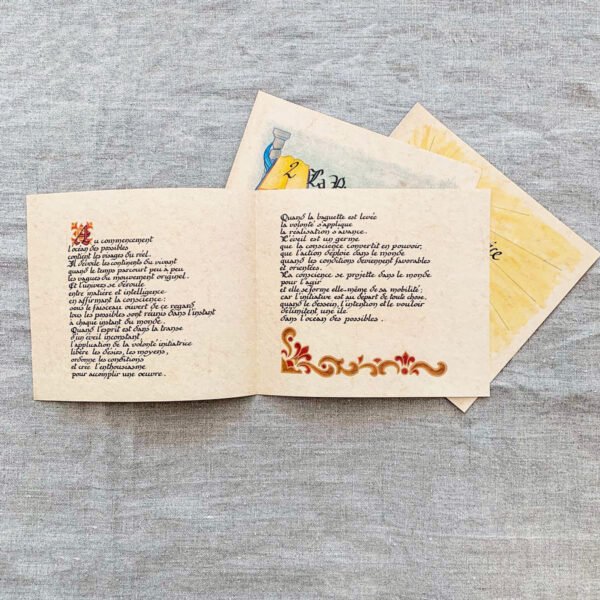 Au commencement
l'océan des possibles
contient les visages du réel.
Il dévoile les continents du vivant
quand le temps parcourt peu à peu
les vagues du mouvement originel.
Et l'univers se déroule
entre matière et intelligence
en affirmant la conscience :
sous le faisceau ouvert de ce regard
tous les possibles sont réunis dans l'instant
à chaque instant du monde.
Quand l'esprit est dans la transe
d'un éveil inconstant,
l'application de la volonté initiatrice
libère les désirs, les moyens,
ordonne les conditions
et crée l'enthousiasme
pour accomplir une oeuvre.
Quand la baguette est levée
la volonté s'applique
la réalisation s'avance.
L'éveil est un germe
que la conscience convertit en pouvoir,
que l'action déploie dans le monde
quand les conditions deviennent favorables
et orientées.
La conscience se projette dans le monde
pour l'agir
et elle se forme elle-même de sa mobilité ;
car l'initiative est au départ de toute chose.
quand le dessein, l'intention et le vouloir
délimitent une île
dans l'océan des possibles.
2
La P